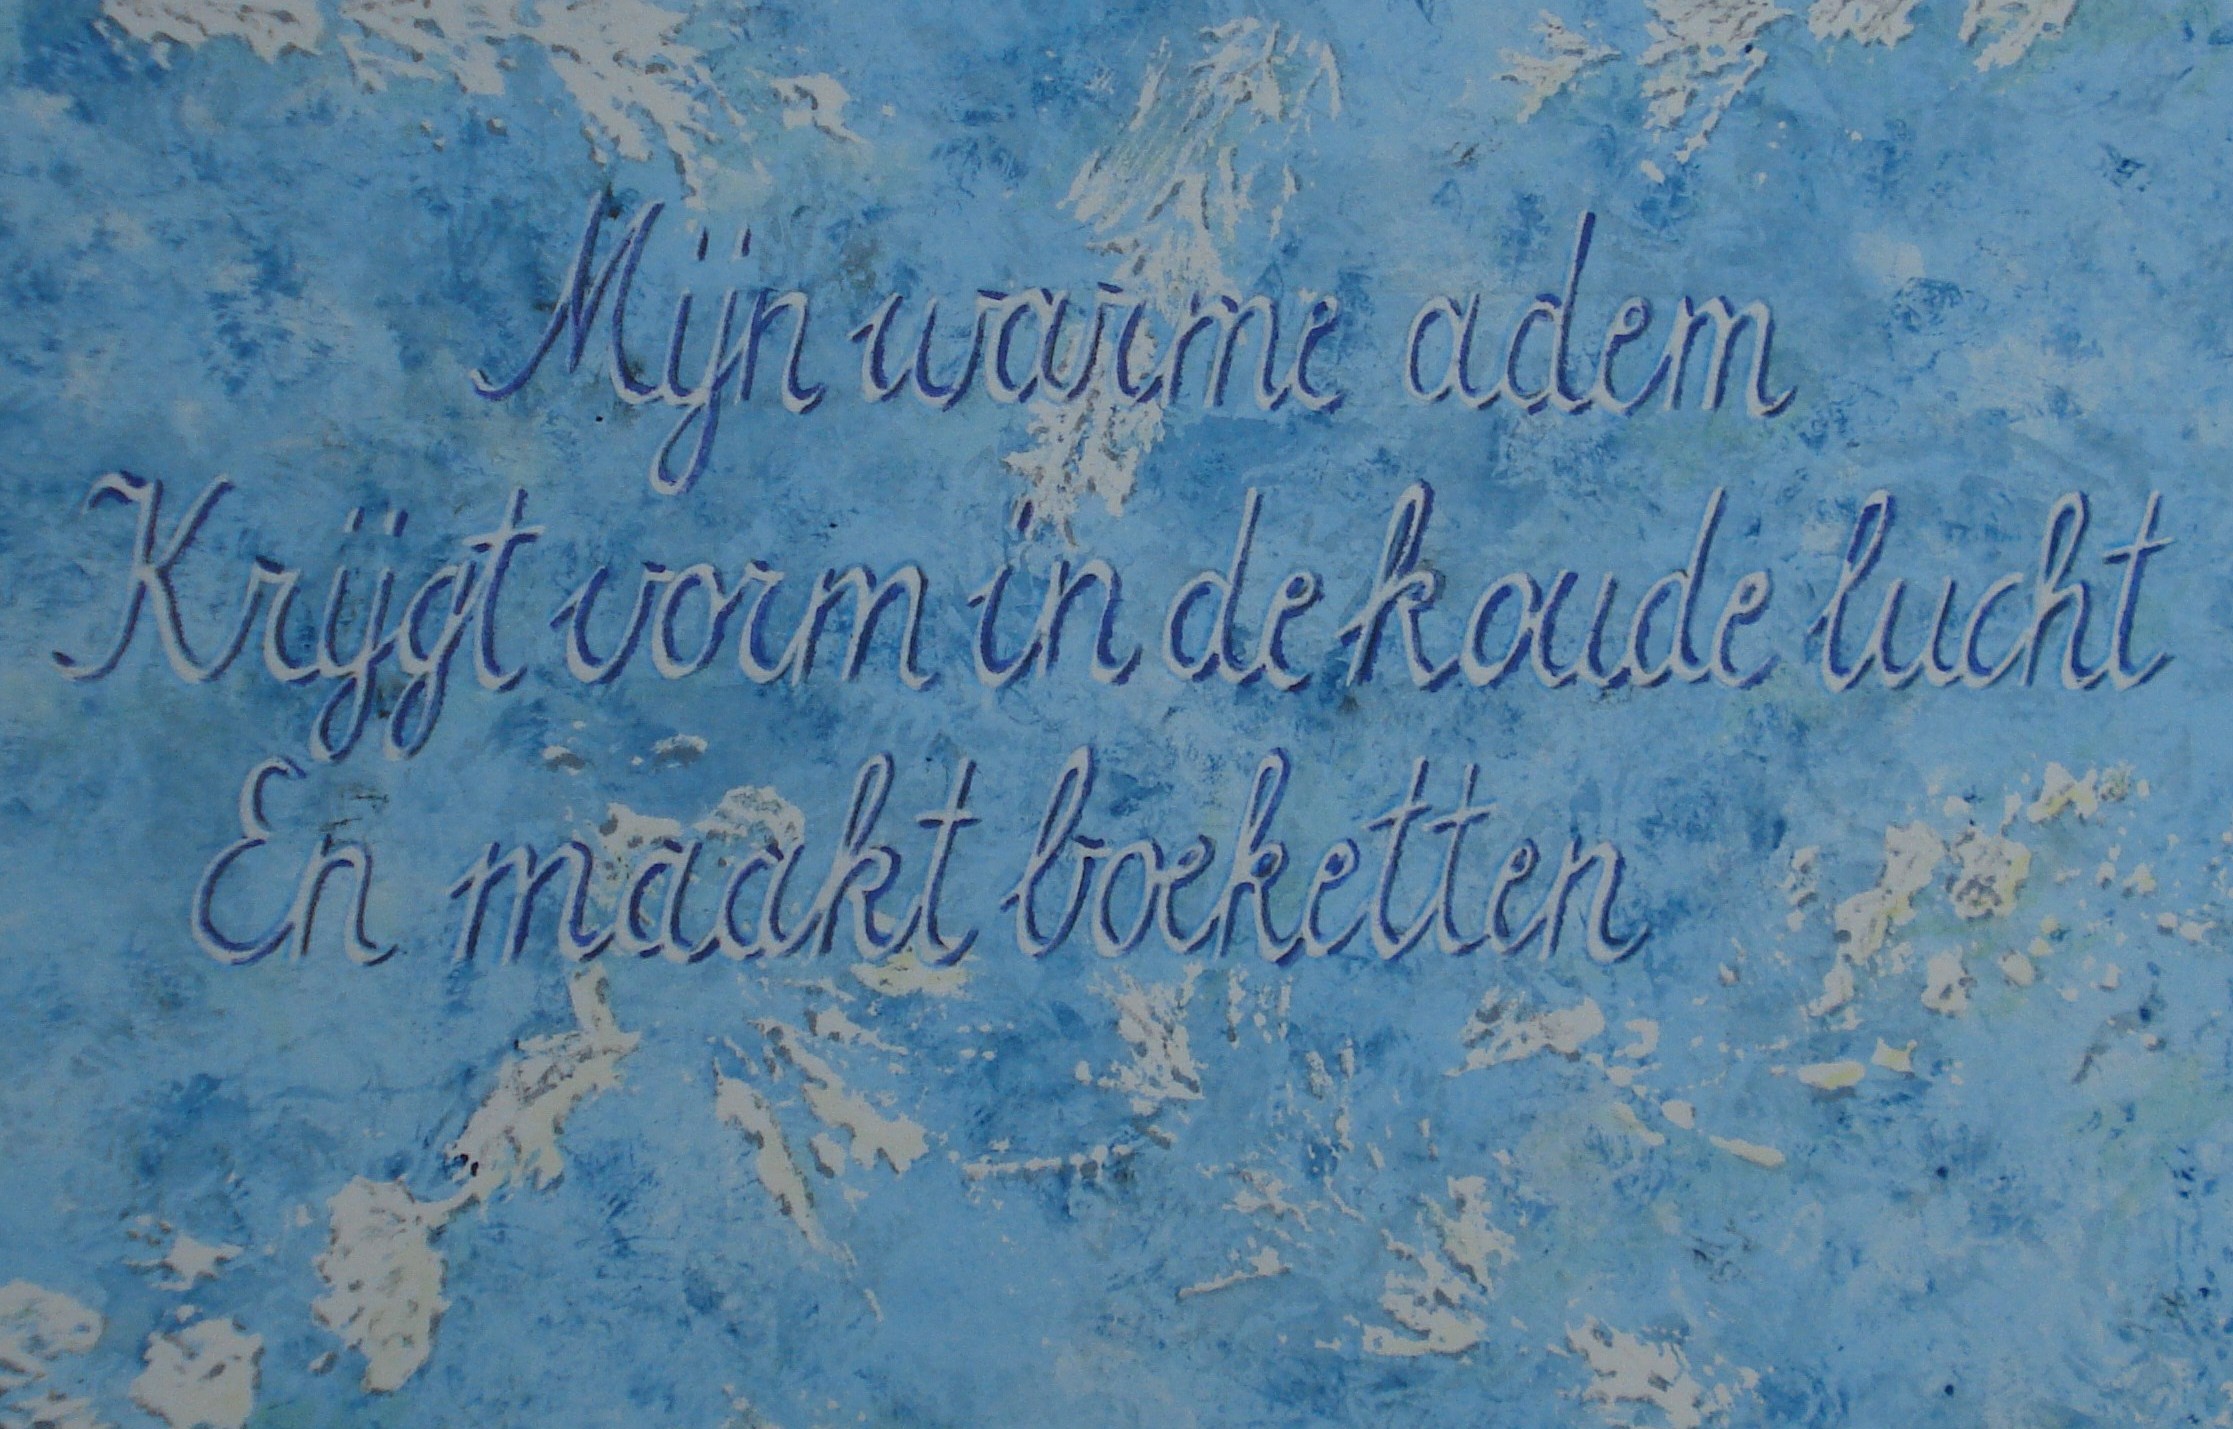 Mijn warme adem
Krijgt vorm in de koude lucht
En maakt boeketten